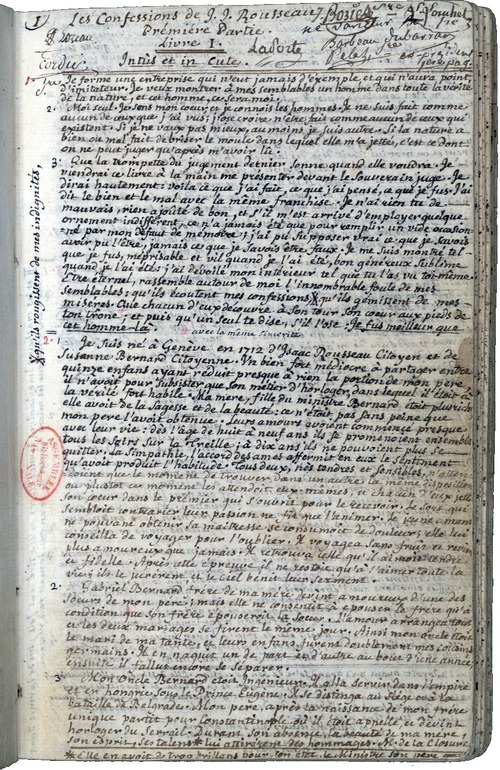 1 Les Confessions de J. J. Rousseau
Première Partie.
Livre 1. Laporte
Intus et in Cute.
1. Je forme une entreprise qui n'eut jamais d'exemple, et qui n'aura point
d'imitateur. Je veux montrer à mes semblables un homme dans toute la vérité
de la nature, et cet homme, ce sera moi.
2. Moi seul. Je sens mon coeur, et je connois les hommes. Je ne suis fait comme
aucun de ceux que j'ai vus; j'ose croire n'être fait comme aucun de ceux qui
existent. Si je ne vaux pas mieux, au moins je suis autre. Si la nature a
bien ou mal fait de briser le moule dans lequel elle m'a jetté, c'est ce dont
on ne peut juger qu'après m'avoir lû.
3. Que la trompette du jugement dernier sonne quand elle voudra. Je
viendrai ce livre à la main me présenter devant le Souverain juge. Je
dirai hautement: voila ce que j'ai fait, ce que j'ai pensé, ce que je fus. J'ai
dit le bien et le mal avec la même franchise. Je n'ai rien tu de
mauvais, rien ajoûté de bon, et s'il m'est arrivé d'employer quelque
ornement indifférent, ce n'a jamais été que pour remplir un vide occasion-
né par mon défaut de mémoire; j'ai pu supposer vrai ce que je savois
avoir pu l'être, jamais ce que je savois être faux. Je me suis montré tel
que je fus, méprisable et vil quand je l'ai été, bon, généreux, sublime,
quand je l'ai été: j'ai dévoilé mon intérieur tel que tu l'as vu toi-même.
Etre éternel, rassemble autour de moi l'innombrable foule de mes
semblables; qu'ils écoutent mes confessions, X qu'ils gémissent de mes
misères. Que chacun d'eux découvre à son tour son coeur aux pieds de
ton trône; et puis qu'un seul te dise, s'il l'ose: Je fus meilleur que
cet homme-là. # avec la même sincérité
X qu'ils rougissent de mes indignités,
2. 1. Je suis né à Genève en 1712 d'Isaac Rousseau Citoyen et de
Susanne Bernard Citoyenne. Un bien fort médiocre à partager entre
quinze enfans ayant réduit presque à rien la portion de mon pere
il n'avoit pour subsister que son métier d'horloger, dans lequel il étoit à
la vérité fort habile. Ma mere, fille du ministre Bernard étoit plus riche
elle avoit de la sagesse et de la beauté: ce n'étoit pas sans peine que
mon pere l'avoit obtenue. Leurs amours avoient commencé presque
avec leur vie: dès l'âge de huit à neuf ans ils se promenoient ensemble
tous les soirs sur la Treille; à dix ans ils ne pouvoient plus se
quitter. La simpathie, l'accord des ames affermit en eux le sentiment
qu'avoit produit l'habitude. Tous deux, nés tendres et sensibles
n'attendoient que le moment de trouver dans un autre la même disposition
ou plustot ce moment les attendoit eux-mêmes, et chacun d'eux jetta
son coeur dans le prémier qui s'ouvrit pour le recevoir. Le sort qui
sembloit contrarier leur passion ne fit que l'animer. Le jeune amant
ne pouvant obtenir sa maitresse se consumoit de douleur; elle lui
conseilla de voyager pour l'oublier. Il voyagea sans fruit et revint
plus amoureux que jamais. Il retrouva celle qu'il aimoit tendre
et fidelle. Après cette épreuve il ne restoit qu'à s'aimer toute la
vie; ils le jurerent, et le Ciel benit leur serment.
2. Gabriel Bernard frere de ma mere devint amoureux d'une des
soeurs de mon pere; mais elle ne consentit à épouser le frere qu'à
condition que son frere épouseroit la soeur. L'amour arrangea tout
et les deux mariages se firent le même jour. Ainsi mon oncle étoit
le mari de ma tante, et leurs enfans furent doublement mes cousins
germains. Il en naquit un de part et d'autre au bout d'une année,
ensuite il fallut encore se séparer.
3. Mon Oncle Bernard étoit Ingenieur: il alla servir dans l'empire
et en hongrie sous le Prince Eugène. Il se distingua au siège et à la
bataille de Belgrade. Mon pere, après la naissance de mon frere
unique partit pour Constantinople où il étoit appellé, et devint
horloger du Serrail. Durant son absence la beauté de ma mere,
son esprit, ses talens * lui attirerent des hommages. M. de la Closure
* Elle en avoit de trop brillans pour son état, le Ministre son pere